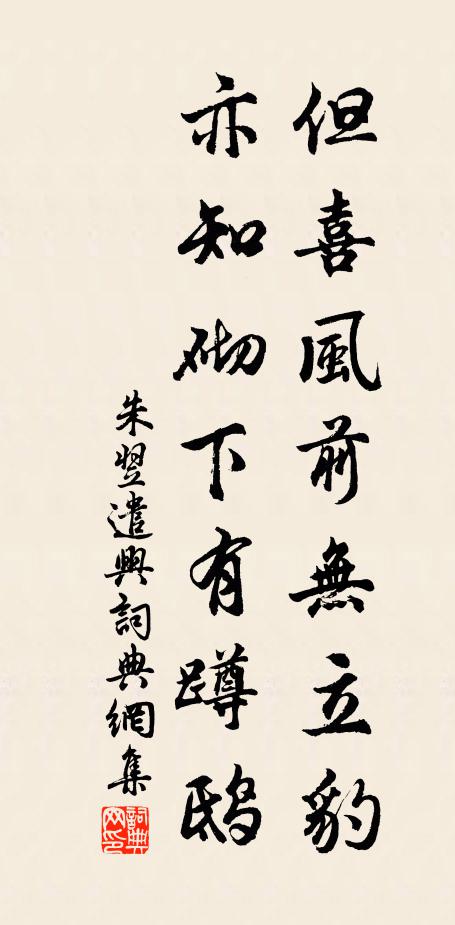 但喜風前無立豹
亦知砌下有蹲鴟
朱翌遣興詞典網集
詞典網印